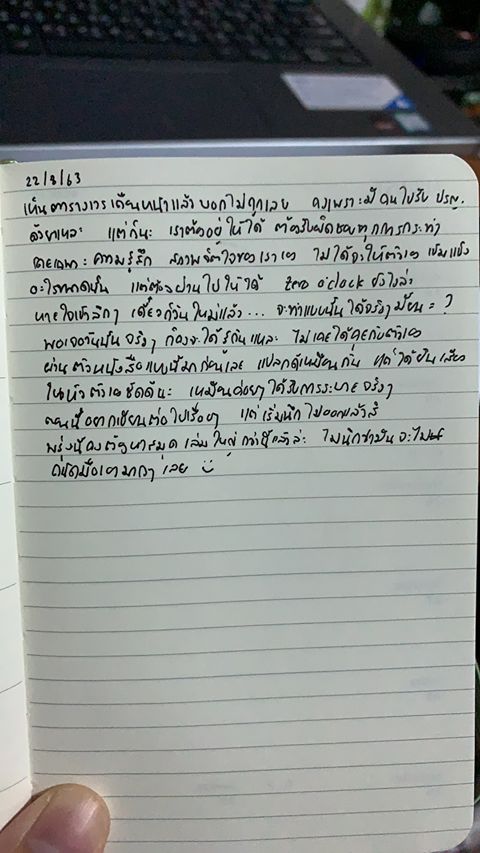 22/3/63
เห็นตารางเวรเดือนหน้าแล้ว บอกไม่ถูกเลย คงเพราะมี
ด้วยแหละ แต่ก็นะ เราต้องอยู่ให้ได้ ต้องรับผิดชอบทุกการกระทำ
โดยเฉพาะ ความรู้สึก สภาพจิตใจของเราเอง ไม่ได้จะให้ตัวเอง เข้มแข็ง
อะไรขนาดนั้น แต่ต้องผ่านไปให้ได้ zero o'clock ยังไงล่ะ
หายใจเข้าลึกๆ เดี๋ยวก็วันใหม่แล้ว... จะทำแบบนั้นได้จริงๆ มั้ยนะ ?
พอเจอวันนั้นจริงๆ ก็คงจะได้รู้กันแหละ ไม่เคยได้คุยกับตัวเอง
ผ่านตัวหนังสือแบบนี้มาก่อนเลย แปลกดีเหมือนกัน แต่ได้ยินเสียง
ในหัวตัวเองชัดดีนะ เหมือนค่อยๆ ได้รับการระบายจริงๆ
ตอนนี้อยากเขียนต่อไปเรื่อยๆ แต่เริ่มนึกไม่ออกแล้วสิ
พรุ่งนี้คงต้องหาสมุดเล่มใหญ่กว่านี้แล้วล่ะ ไม่นึกว่ามันจะ
มากๆ เลย